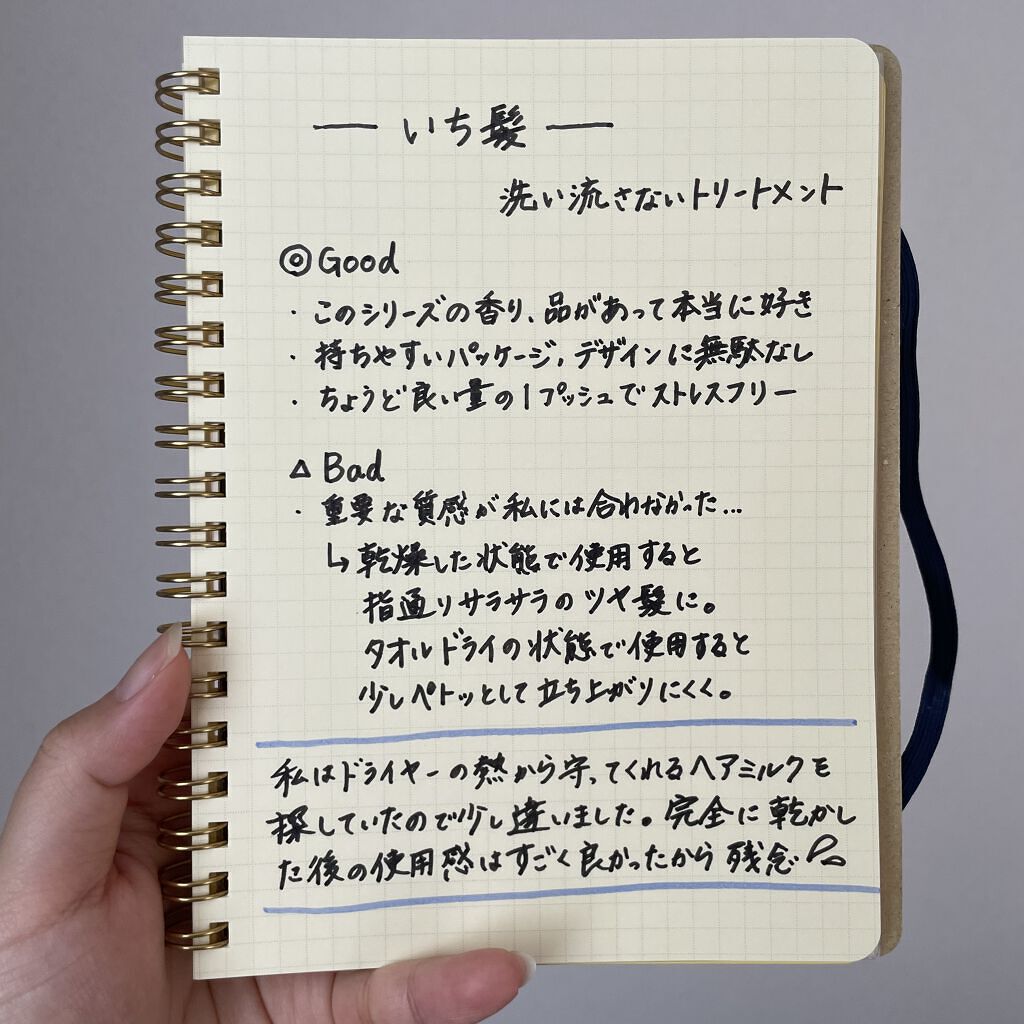 — いち髪 —
洗い流さないトリートメント
◎ Good
・このシリーズの香り、品があって本当に好き
・持ちやすいパッケージ、デザインに無駄なし
・ちょうど良い量の1プッシュでストレスフリー
△ Bad
・重要な質感が私には合わなかった…
↳乾燥した状態で使用すると
指通りサラサラのツヤ髪に。
タオルドライの状態で使用すると
少しペトッとして立ち上がりにくく。
私はドライヤーの熱から守ってくれるヘアミルクを
探していたので少し違いました。完全に乾かし
た後の使用感はすごく良かったから残念